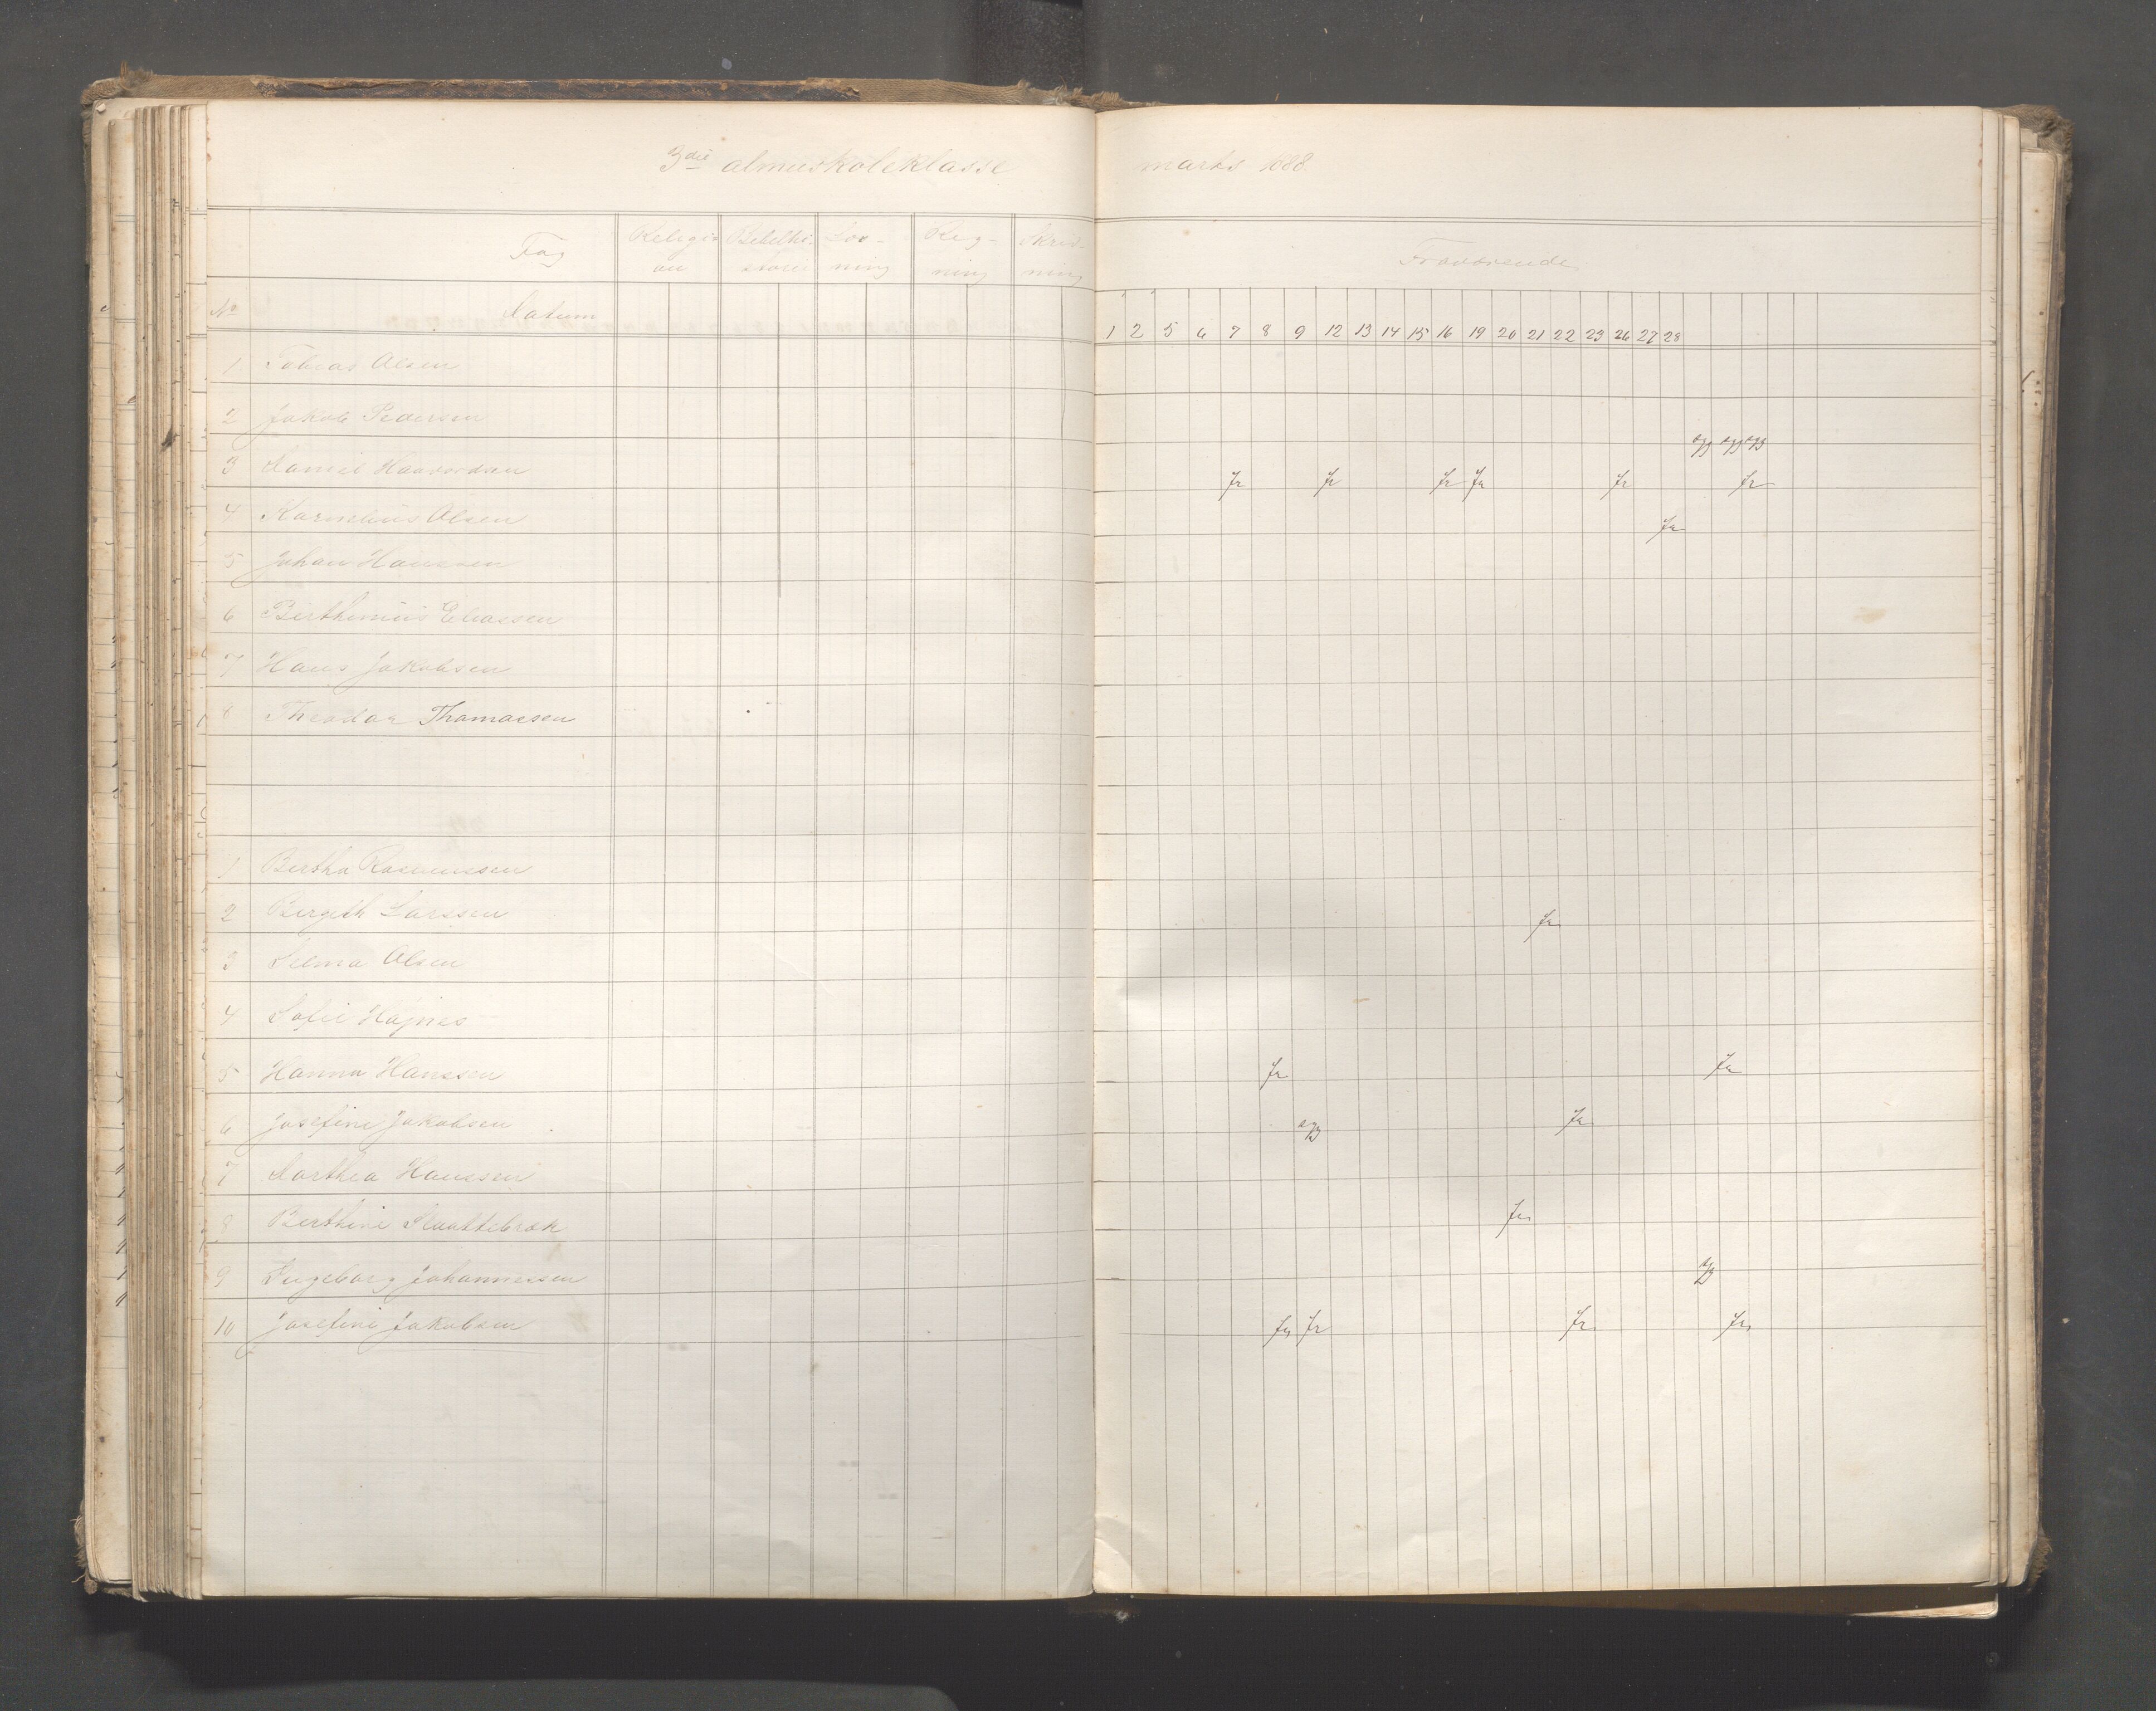 3die almueskoleklasse marts 1888.
Fag Religion Bibelhistorie Læsning Regning Skrivning Fraværende
No Datum 1 2 5 6 7 8 9 12 13 14 15 16 19 20 21 22 23 26 27 28
1 Tobias Olsen
2 Jakob Pedersen
3 Daniel Haavordsen fr fr fr fr fr fr
4 Kornelius Olsen fr
5 Johan Hanssen
6 Berthinius Eliassen
7 Hans Jakobsen
8 Theodor Thomassen
1 Bertha Rasmussen
2 Bergith Larssen fr
3 Selma Olsen
4 Sofie Højnes
5 Hanna Hanssen fr fr
6 Josefine Jakobsen fr
7 Dorthea Hanssen
8 Berthine Slaattebræk fr
9 Ingeborg Johannessen
10 Josefine Jakobsen fr fr fr fr